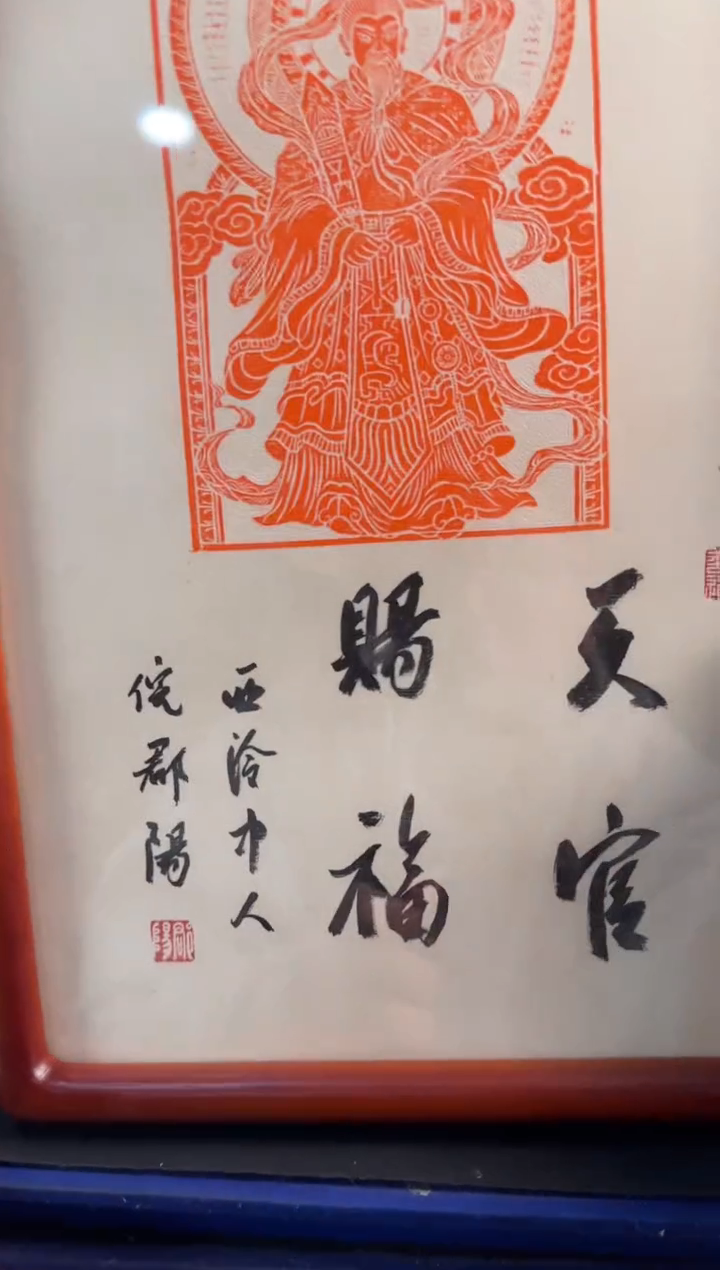 天官
賜福
西泠中人
倪郡陽
郡陽